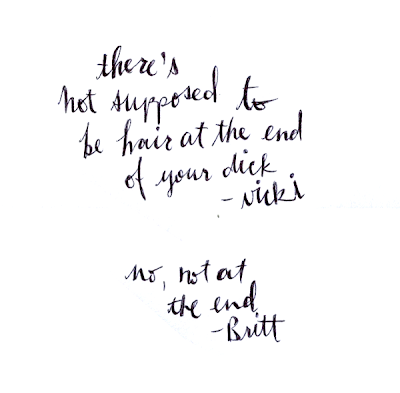 there's
not supposed to
be hair at the end
of your dick
-Vicki
no, not at
the end.
-Britt